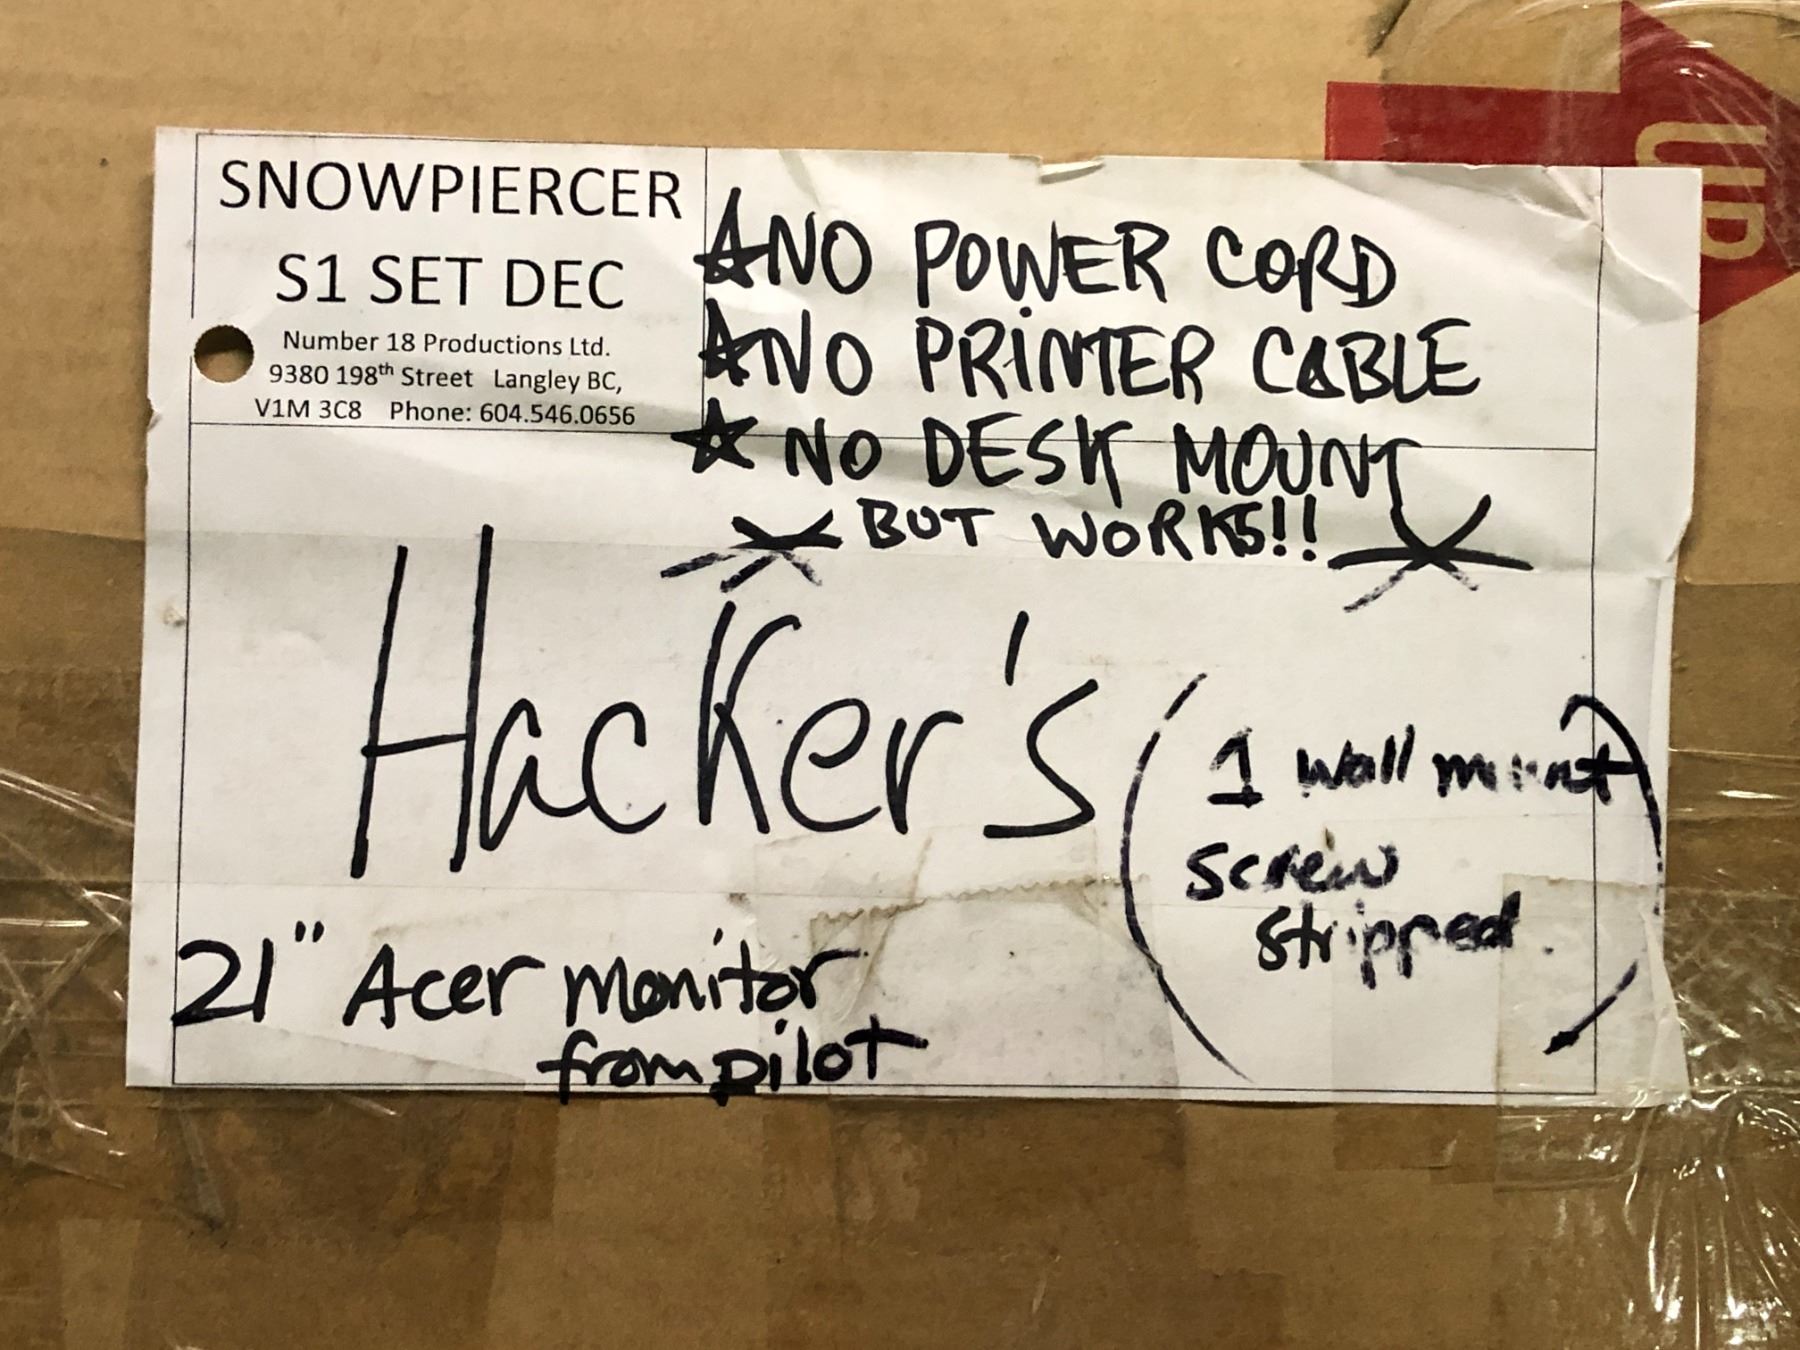 SNOWPIERCER
S1 SET DEC
Number 18 Productions Ltd.
9380 198th Street Langley BC,
V1M 3C8 Phone: 604.546.0656
☆NO POWER CORD
☆NO PRINTER CABLE
☆ NO DESK MOUNT
BUT WORKS!!
Hacker's
(1 wall mount
screw
stripped.)
21" Acer monitor
from pilot
UP